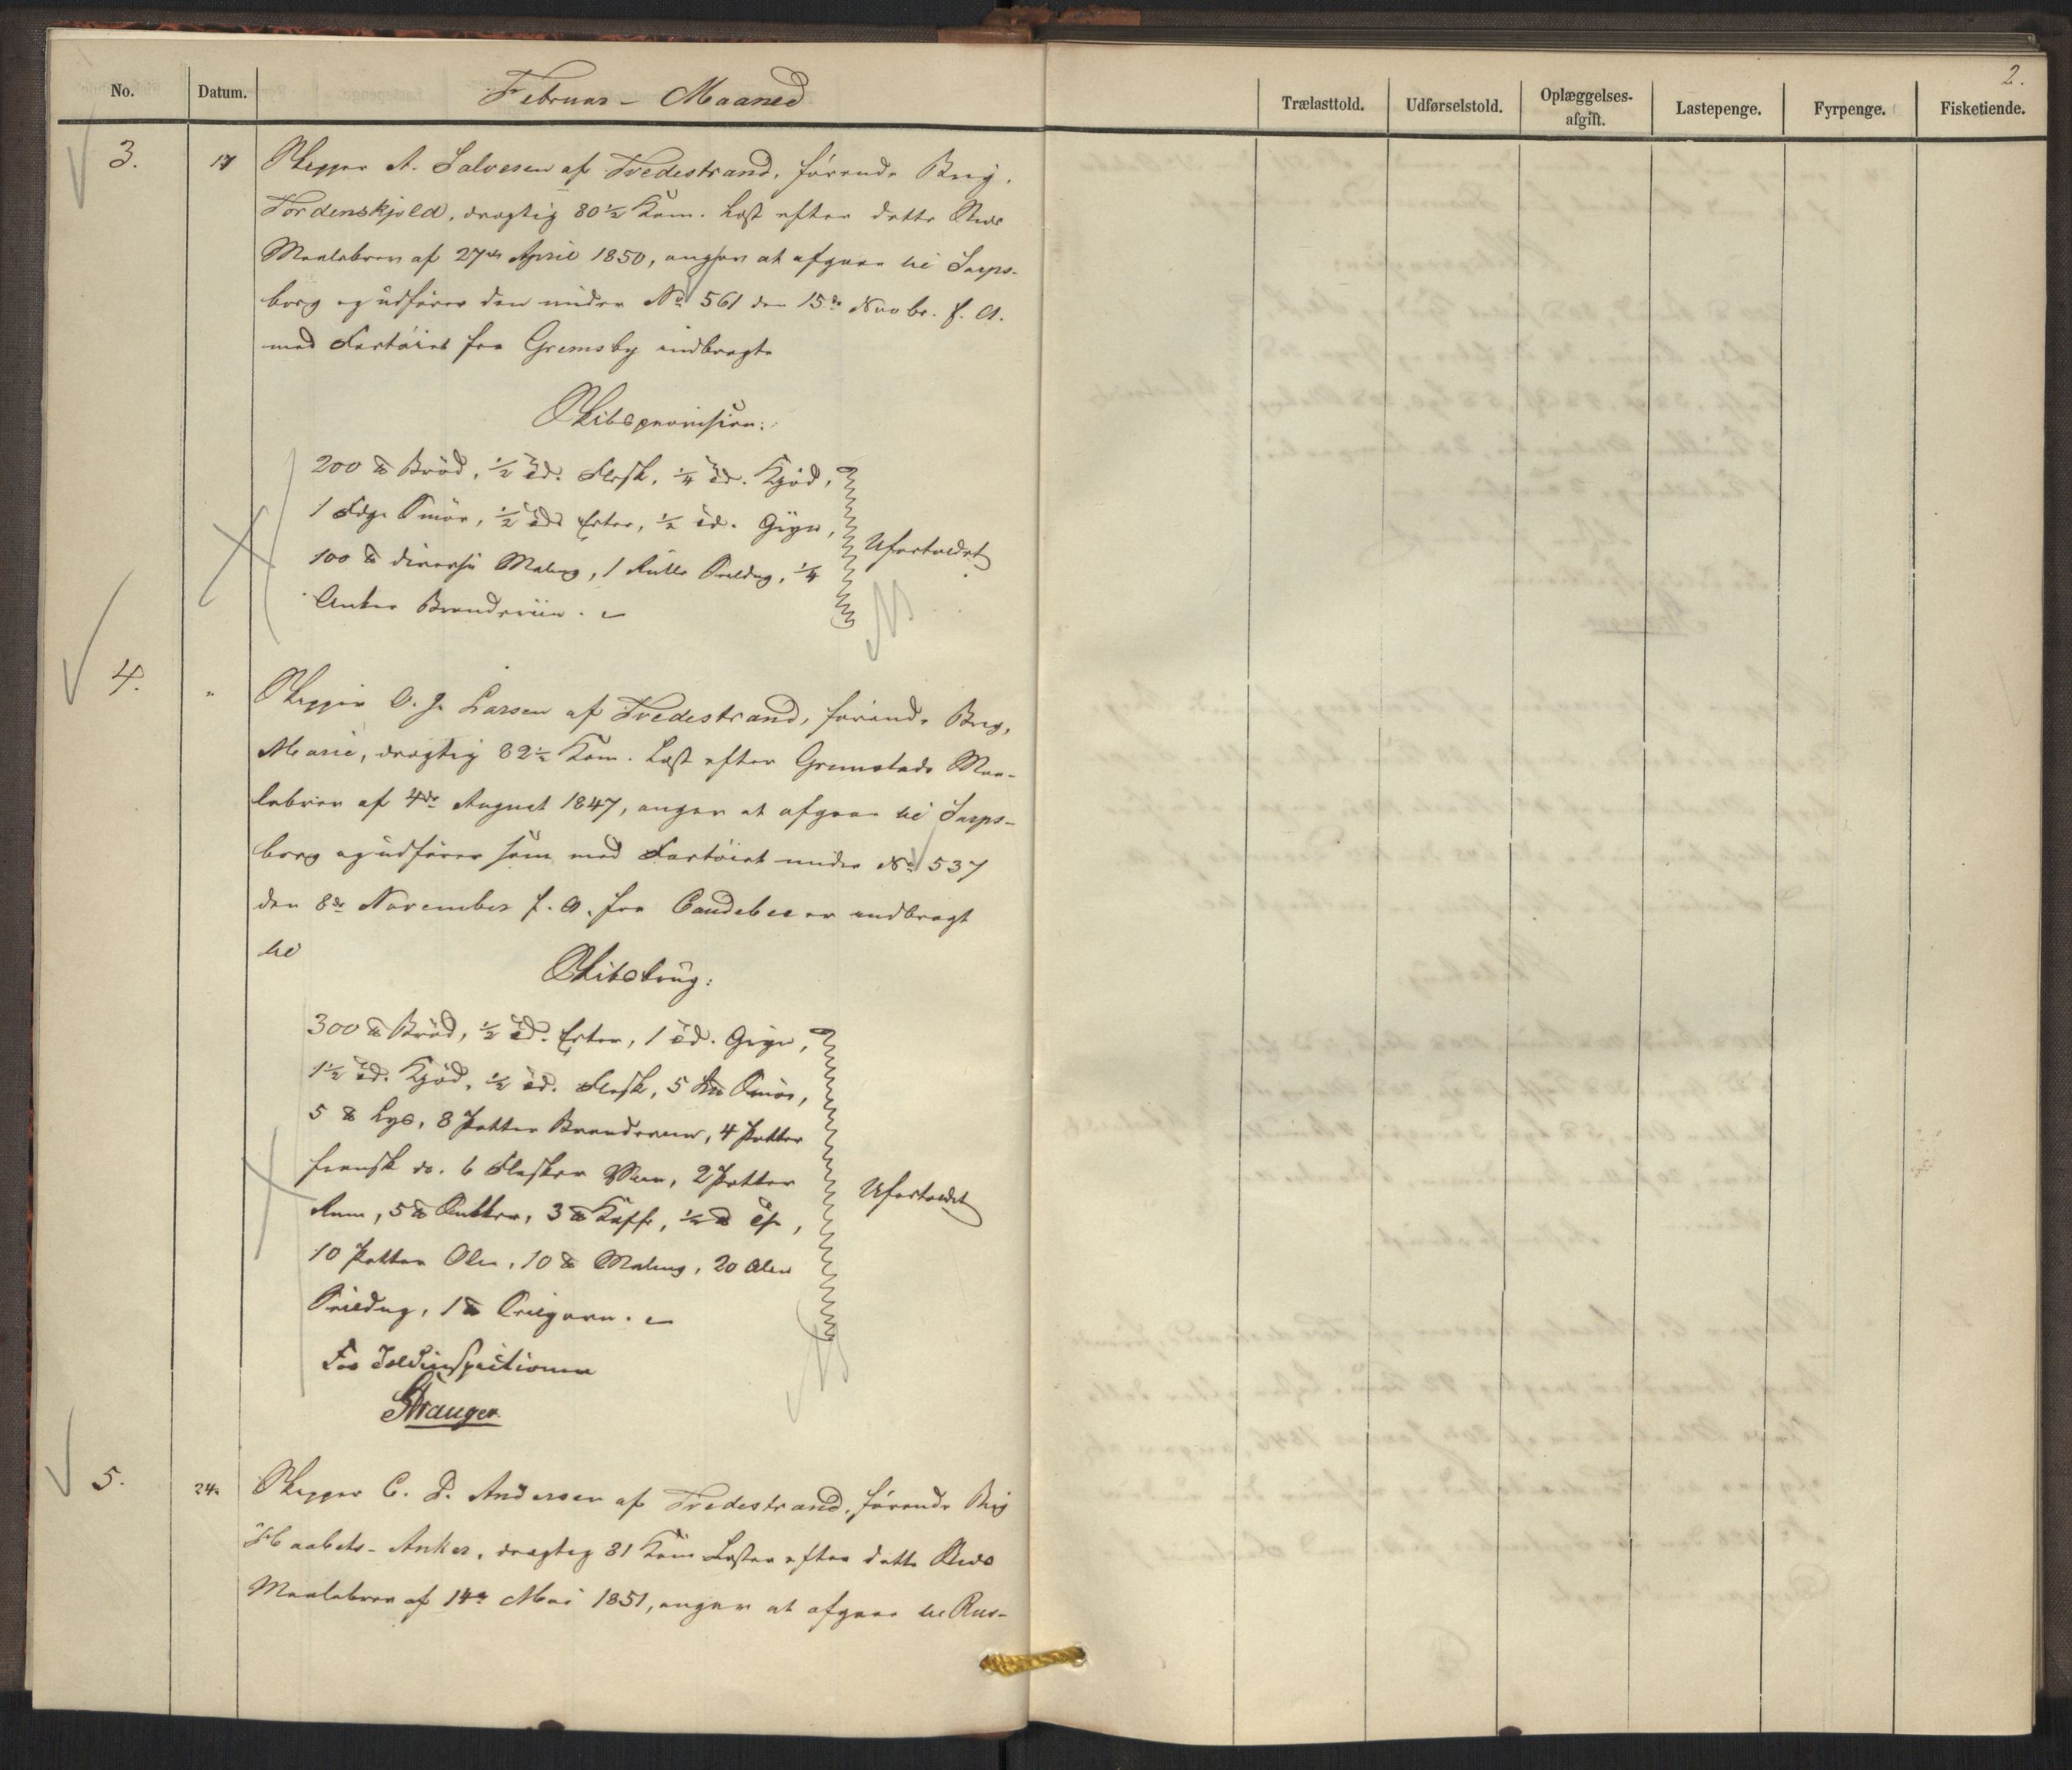 2.
No. Datum. Februar - Maaned
Trælasttold. Udførselstold. Oplæggelses-afgift. Lastepenge. Fyrpenge. Fisketiende.
3. 17 Skipper A. Salvesen af Tvedestrand, förende Brig.
Tordenskjold, drægtig 80½ Kom. Læst efter dette Steds
Maalebrev af 27de April 1850, angiver at afgaae til Sarps-
borg og udfører den under No 561 den 15de Novbr. f. A.
med Fartöiet fra Gremsby indbragte
Skibsprovision:
200 ℔ Bröd, ½ Td. Flesk, ¼ Td. Kjöd,
1 Fdg. Smör, ½ Td. Erter, ½ Td. Gryn,
100 ℔ diverse Maling, 1 Rulle Seildug, ¼
Anker Brændeviin.
Ufortoldet
4. " Skipper O. J. Larsen af Tvedestrand, förende Brig,
Marie, drægtig 82½ Kom. Læst efter Grimstads Maa-
lebrev af 4de August 1847, angiver at afgaae til Sarps-
borg og udfører som med Fartöiet under No 537
den 8de November f. A. fra Caudebec er indbragt
til
Skibsbrug:
300 ℔ Bröd, ½ Td. Erter, 1 Td. Gryn,
1½ Td. Kjöd, ½ Td. Flesk, 5 Smör,
5 ℔ Lys, 8 Potter Brændeviin, 4 Potter
fransk do. 6 Flasker Viin, 2 Potter
Rum, 5 ℔ Sukker, 3 ℔ Kaffe, ½ ℔ The,
10 Potter Olie, 10 ℔ Maling, 20 Alen
Seildug, 1 ℔ Seilgarn.
Ufortoldet
For Toldinspectionen
Stranger
5. 24. Skipper C. D. Andersen af Tvedestrand, förende Brig
Haabets-Anker, drægtig 81 Kom Læster efter dette Steds
Maalebrev af 14de Mai 1851, angiver at afgaae til Rus-